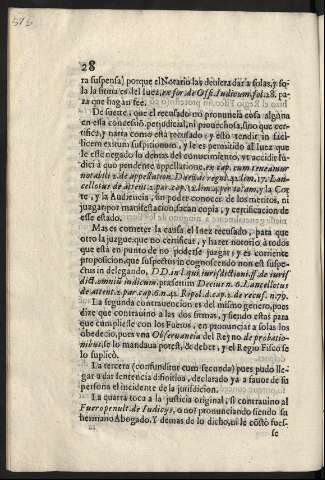 28
ra suspensa) porque el Notario las deuiera dar a solas, y so-
la la firma es del Iuez, ex for. de Offi. Iudicum. fol. 28. pa-
ra que hagan fee.
De suerte, que el recusado no pronuncia cosa alguna
en esta concession, perjudical, ni prouechosa, sino que cer-
tifica, y narra como està recusado, y esto tendit in faci-
liorem exitum suspitionum, y le es permitido al Iuez que
le està negado lo demas del conocimiento, vt accidit Iu-
dici à quo pendente appellatione, ex cap. cum teneamur
notabili 2. de appellation. Dueñas regul. 42. lim. 17. Lan-
cellotus de attent. 2. par. cap. 12. lim. 4. per totam, y la Cor-
te, y la Audiencia, sin poder conocer de los meritos, ni
juzgar por manifestacion sacan copia, y certificacion de
esse estado.
Mas es cometer la causa el Iuez recusado, para que
otro la juzgue, que no certificar, y hazer notorio à todos
que està en punto de no poderse juzgar, y es corriente
proposicion, que suspectus in cognoscendo non est suspe-
ctus in delegando, DD. in l. qui iurisdictioni. ff. de iurisf
dict. omniũ iudicum. præsertim Decius n. 6. Lancellotus
de attent. 2. par. cap. 6. n. 41. Ripol. d. cap. 2. de recus. n. 79.
La segunda contrauencion es del mismo genero, pues
dize que contrauino a las dos firmas, y siendo estas para
que cumpliesse con los Fueros, en pronunciar a solas los
obedecio, pues vna Obseruancia del Reyno de probatio-
nibus, se lo mandaua potest, & debet, y el Regio Fisco se
lo suplicò.
La tercera (confunditur cum secunda) pues pudo lle-
gar a dar sentencia difinitiua, declarado ya a fauor de su
persona el incidente de la jurisdicion.
La quarta toca a la justicia original, si contrauino al
Fuero penult. de Iudicijs, ò no? pronunciando siendo su
hermano Abogado. Y demas de lo dicho, ni le costò fues-
se